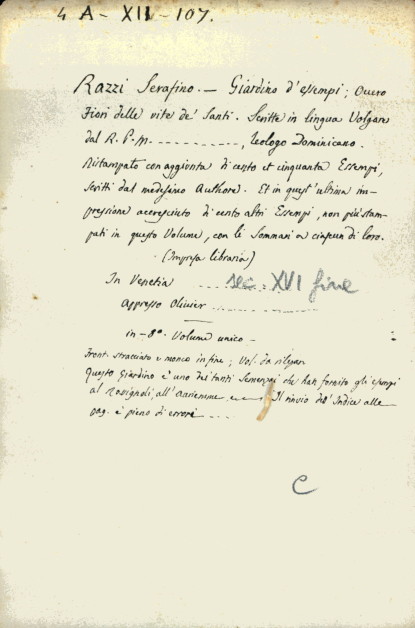 4 A - XII - 107.
Razzi Serafino. — Giardino d'essempi; Ouero
Fiori delle vite de' Santi. Scritte in lingua Volgare
dal R. P. M. ----------, Teologo Dominicano.
Ristampato con aggiunta di cento et cinquanta Essempi,
scritti dal medesimo Authore. Et in quest'ultima im-
pressione accresciuto di cento altri Essempi, non più stam-
pati in questo Volume, con le Sommari a ciascun di loro.
(Impresa libraria)
In Venetia sec. XVI fine
Appresso Olivier
in - 8°. Volume unico -
Front. stracciato e monco in fine; Vol. da rilegare
Questo Giardino è uno dei tanti che han fornito gli esempi
al Rosignoli, all' Il rinvio dell'Indice alle
pag. è pieno di errori ---
C